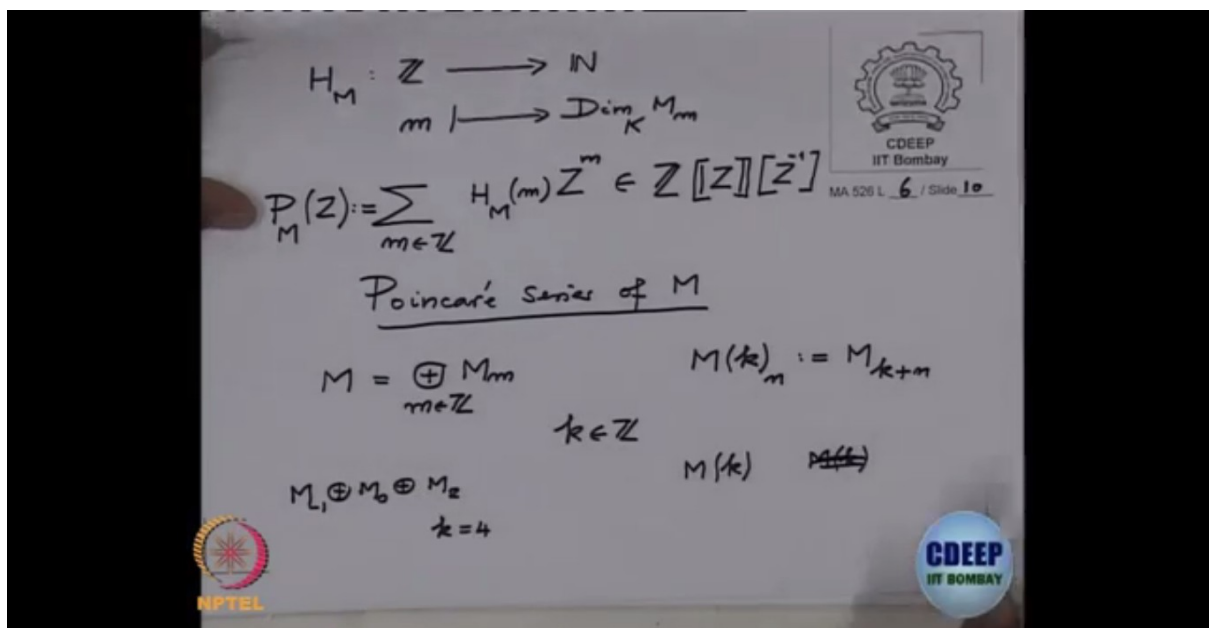 H_M : ℤ ⟶ ℕ
m ⟼ Dim_K M_m
CDEEP
IIT Bombay
MA 526 L 6 / Slide 10
P_M(Z) := ∑_{m∈ℤ} H_M(m) Z^m ∈ ℤ[[Z]][Z^{-1}]
Poincaré series of M
M = ⊕_{m∈ℤ} M_m
M(k)_n := M_{k+n}
k ∈ ℤ
M(k) ~~M(k)~~
M_{-1} ⊕ M_0 ⊕ M_2
k = 4
NPTEL
CDEEP
IIT BOMBAY